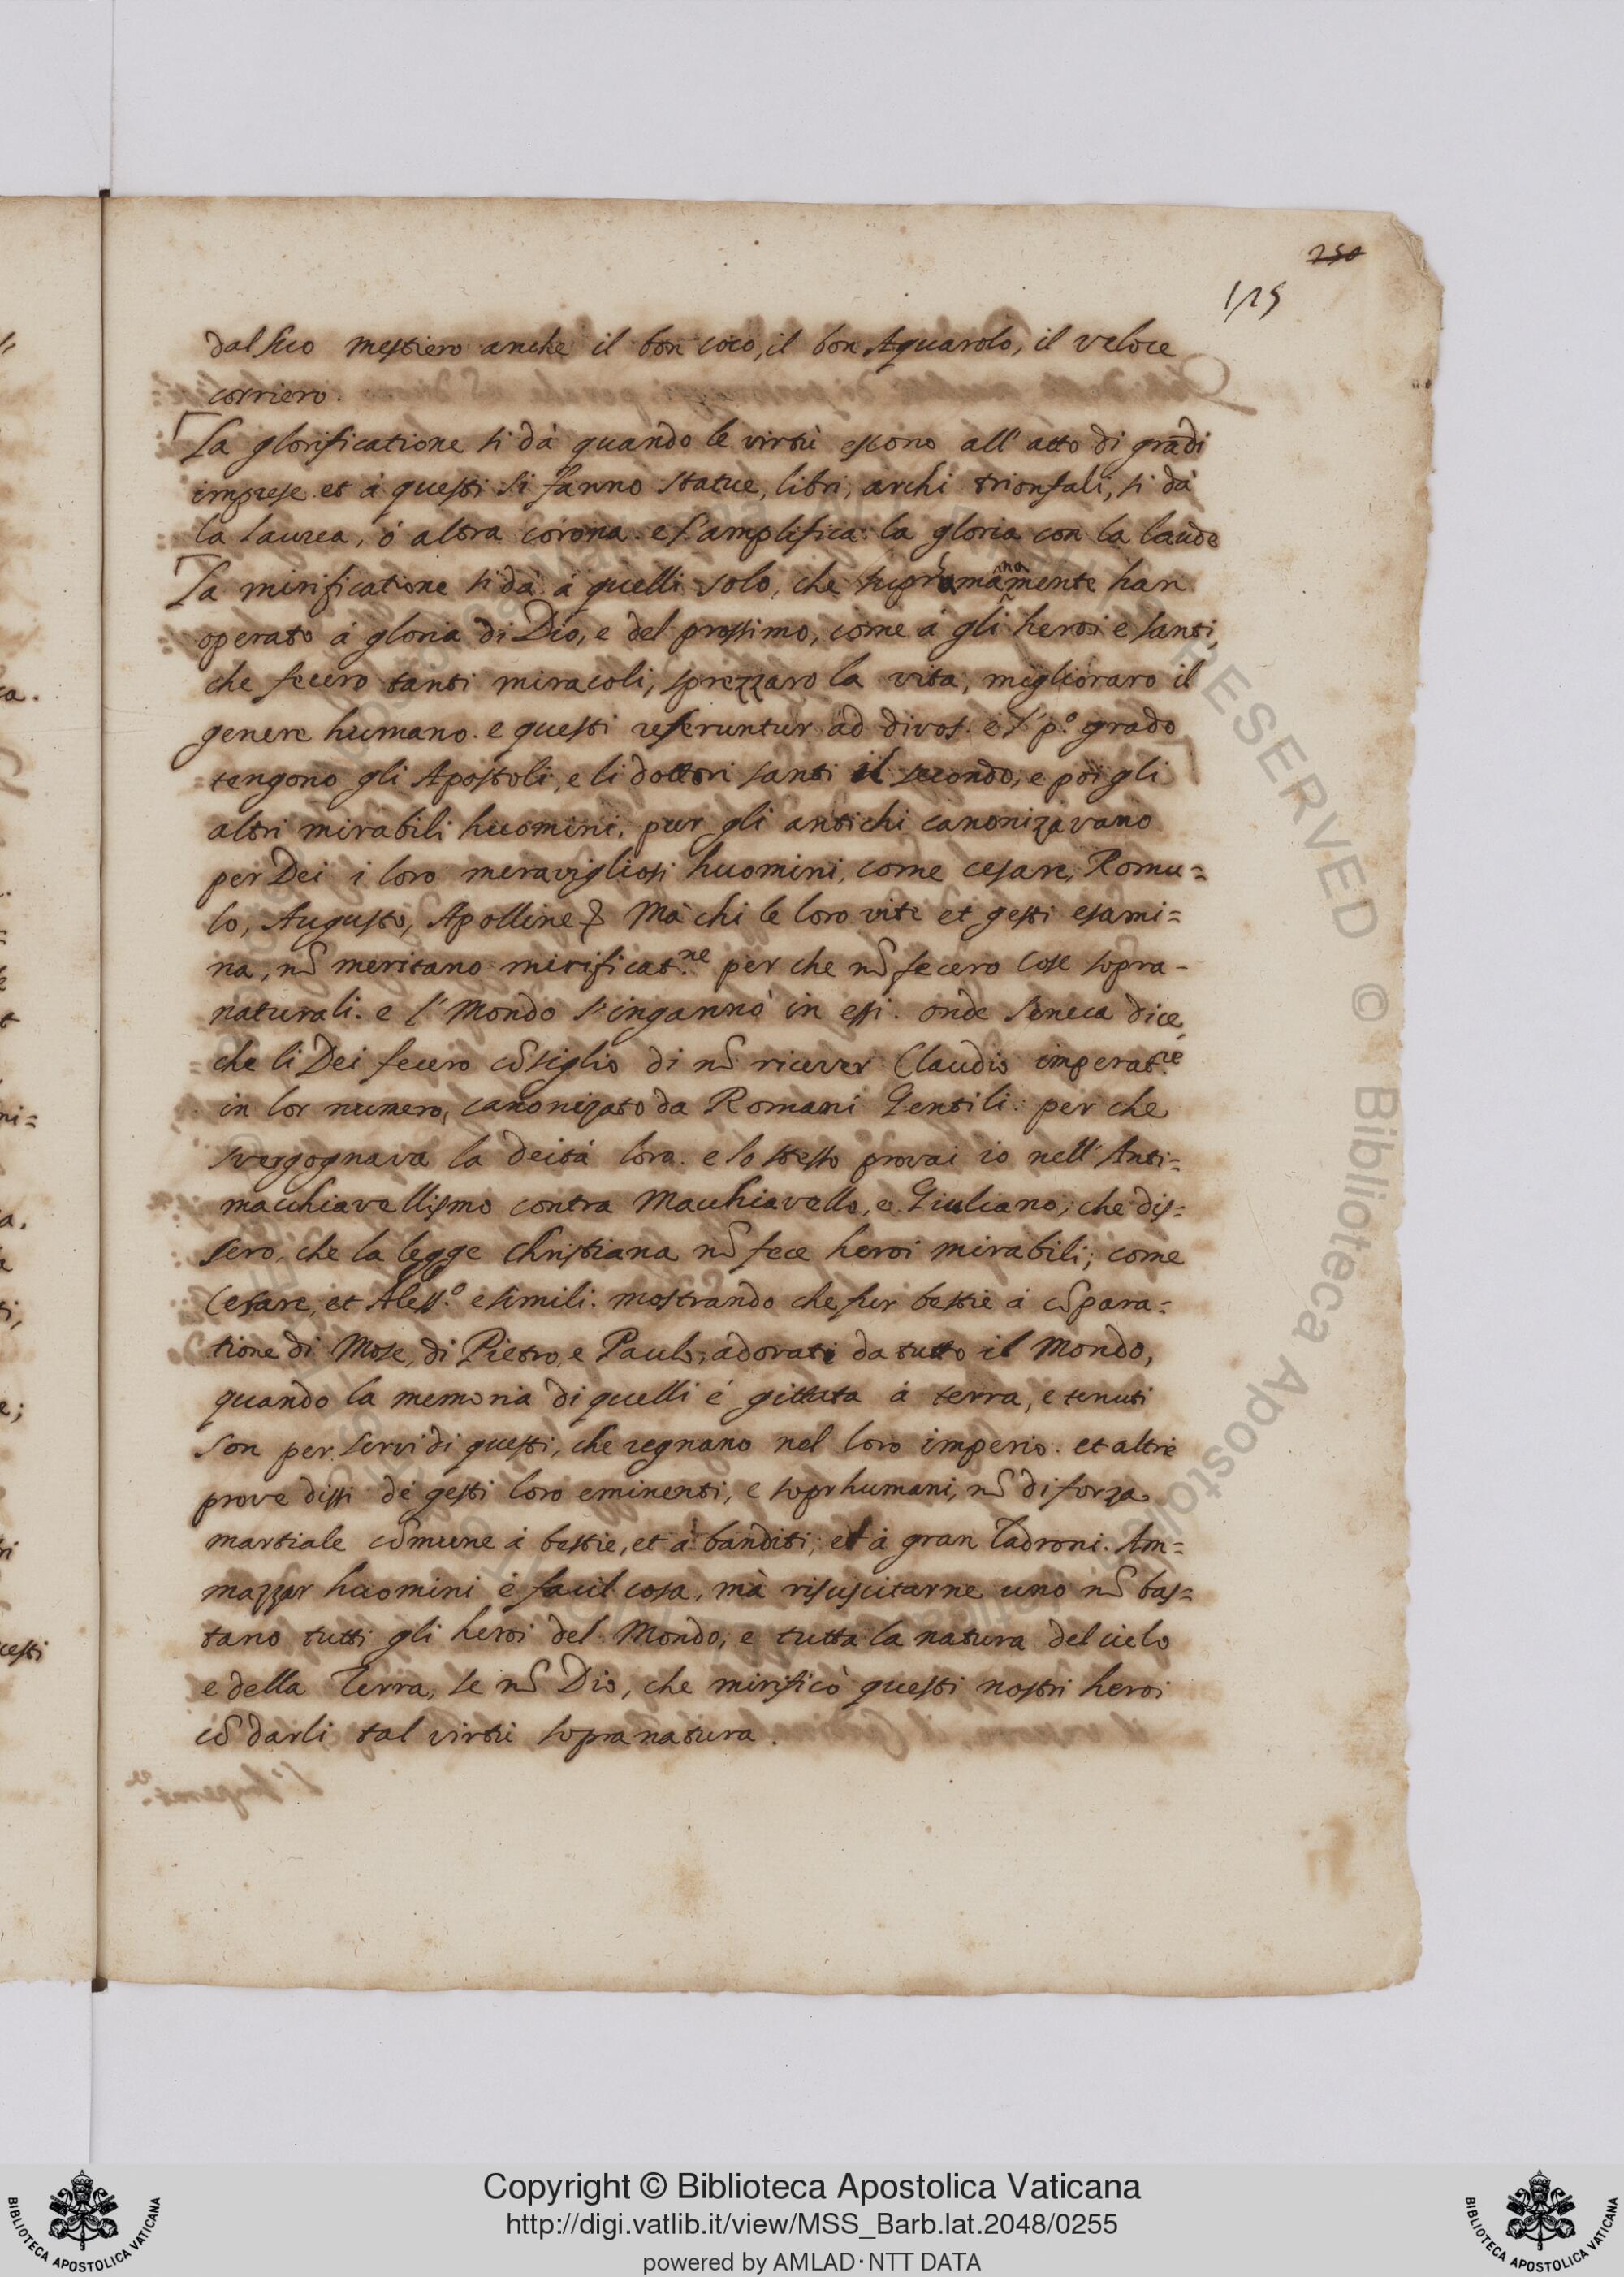 250
125
dal suo mestiero anche il bon coco, il bon Aquarolo, il veloce
corriero.
La glorificatione si dà quando le virtù escono all' atto di grãdi
imprese. et à questi si fanno statue, libri, archi trionfali, si dà
la laurea, ò altra corona. e s'amplifica la gloria con la laude
La mirificatione si dà à quelli solo, che
operato à gloria di Dio, e del prossimo, come à gli heroi e santi,
che fecero tanti miracoli, sprezzaro la vita, miglioraro il
genere humano. e questi referuntur ad divos. e 'l p.º grado
tengono gli Apostoli, e li dottori santi il secondo, e poi gli
altri mirabili huomini. pur gli antichi canonizavano
per Dei i loro meravigliosi huomini, come cesare, Romu=
lo, Augusto, Apolline & Mà chi le loro vite et gesti esami=
na, nõ meritano mirificat.ne per che nõ fecero cose sopra-
naturali. e l' Mondo s'ingannò in essi. onde Seneca dice,
che li Dei fecero cõsiglio di nõ ricever Claudio imperat.re
in lor numero, canonizato da Romani Gentili: per che
svergognava la deità loro. e lo stesso provai io nell' Anti=
macchiavellismo contra Macchiavello, e Giuliano, che dis=
sero, che la legge christiana nõ fece heroi mirabili, come
Cesare, et Aless.º e simili. mostrando che fur bestie à cõpara=
tione di Mose, di Pietro, e Paulo, adorati da tutto il Mondo,
quando la memoria di quelli é gittata à terra, e tenuti
son per servi di questi, che regnano nel loro imperio. et altre
prove dissi de gesti loro eminenti, e soprhumani, nõ di forza
martiale cõmune à bestie, et à banditi, et à gran ladroni. Am=
mazzar huomini è facil cosa, mà risuscitarne uno nõ bas=
tano tutti gli heroi del Mondo, e tutta la natura del cielo
e della Terra, se nõ Dio, che mirificò questi nostri heroi
cõ darli tal virtù sopra natura.
Copyright © Biblioteca Apostolica Vaticana
http://digi.vatlib.it/view/MSS_Barb.lat.2048/0255
powered by AMLAD·NTT DATA
BIBLIOTECA APOSTOLICA VATICANA
BIBLIOTECA APOSTOLICA VATICANA